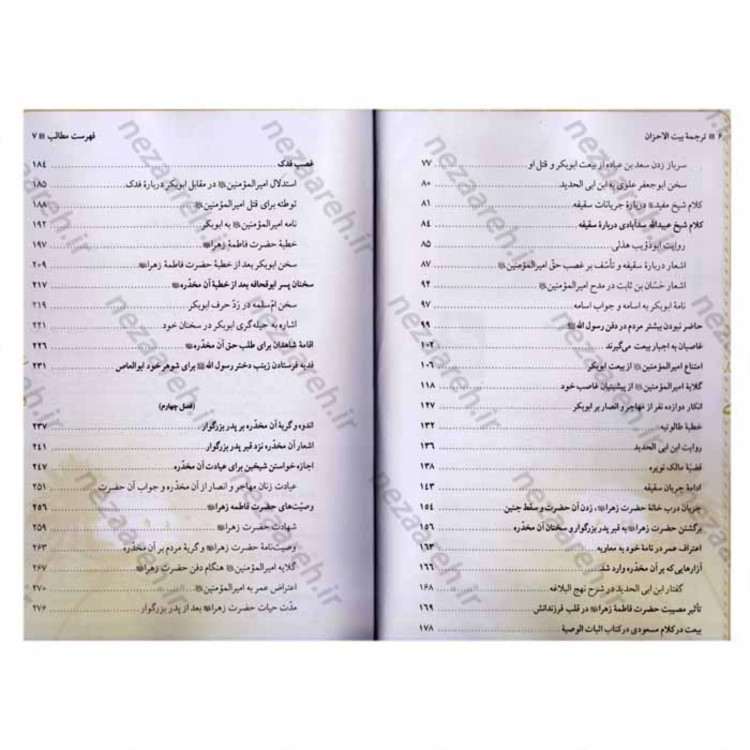 ۶ ▪ ترجمهٔ بیت الاحزان
سرباز زدن سعد بن عباده از بیعت ابوبکر و قتل او ۷۷
سخن ابوجعفر علوی به ابن ابی الحدید ۸۰
کلام شیخ مفید دربارهٔ جریانات سقیفه ۸۱
کلام شیخ عبیدالله سدآبادی دربارهٔ سقیفه ۸۴
روایت ابوذؤیب هذلی ۸۵
اشعار دربارهٔ سقیفه و تأسّف بر غصب حقّ امیرالمؤمنین ۸۷
اشعار حسّان بن ثابت در مدح امیرالمؤمنین ۹۲
نامهٔ ابوبکر به اسامه و جواب اسامه ۹۷
حاضر نبودن بیشتر مردم در دفن رسول الله ۹۹
غاصبان به اجبار بیعت می‌گیرند ۱۰۲
امتناع امیرالمؤمنین از بیعت ابوبکر ۱۰۶
گلایهٔ امیرالمؤمنین از پیشینیان غاصب خود ۱۱۸
انکار دوازده نفر از مهاجر و انصار بر ابوبکر ۱۲۷
خطبهٔ طالوتیه ۱۳۲
روایت ابن ابی الحدید ۱۳۶
قضیّهٔ مالک نویره ۱۳۸
ادامهٔ جریان سقیفه ۱۴۳
جریان درب خانهٔ حضرت زهرا، زدن آن حضرت و سقط جنین ۱۵۴
برگشتن حضرت زهرا به قبر پدر بزرگوار و سخنان آن مخدّره ۱۵۶
اعتراف عمر در نامهٔ خود به معاویه ۱۶۳
آزارهایی که بر آن مخدّره وارد شد ۱۶۶
گفتار ابن ابی الحدید در شرح نهج البلاغه ۱۶۸
تأثیر مصیبت حضرت فاطمهٔ زهرا در قلب فرزندانش ۱۶۹
بیعت در کلام مسعودی در کتاب اثبات الوصیة ۱۷۸
فهرست مطالب ▪ ۷
غصب فدک ۱۸۴
استدلال امیرالمؤمنین در مقابل ابوبکر دربارهٔ فدک ۱۸۵
توطئه برای قتل امیرالمؤمنین ۱۸۸
نامه امیرالمؤمنین به ابوبکر ۱۹۲
خطبهٔ حضرت فاطمهٔ زهرا ۱۹۷
سخن ابوبکر بعد از خطبهٔ حضرت فاطمهٔ زهرا ۲۰۹
سخنان پسر ابوقحافه بعد از خطبهٔ آن مخدّره ۲۱۷
سخن امّ سلمه در ردّ حرف ابوبکر ۲۱۹
اشاره به حیله‌گری ابوبکر در سخنان خود ۲۲۱
اقامهٔ شاهدان برای طلب حق آن مخدّره ۲۲۶
فدیه فرستادن زینب دختر رسول الله برای شوهر خود ابوالعاص ۲۳۱
(فصل چهارم)
اندوه و گریهٔ آن مخدّره بر پدر بزرگوار ۲۳۷
اشعار آن مخدّره نزد قبر پدر بزرگوار ۲۴۱
اجازه خواستن شیخین برای عیادت آن مخدّره ۲۴۷
عیادت زنان مهاجر و انصار از آن مخدّره و جواب آن حضرت ۲۵۱
وصیّت‌های حضرت فاطمه زهرا ۲۵۶
شهادت حضرت زهرا ۲۵۹
وصیّت‌نامهٔ حضرت زهرا و گریهٔ مردم بر آن مخدّره ۲۶۳
گلایه امیرالمؤمنین هنگام دفن حضرت زهرا ۲۶۷
اعتراض عمر به امیرالمؤمنین ۲۷۰
مدّت حیات حضرت زهرا بعد از پدر بزرگوار ۲۷۶
nezaareh.ir
nezaareh.ir
nezaareh.ir
nezaareh.ir
nezaareh.ir
nezaareh.ir